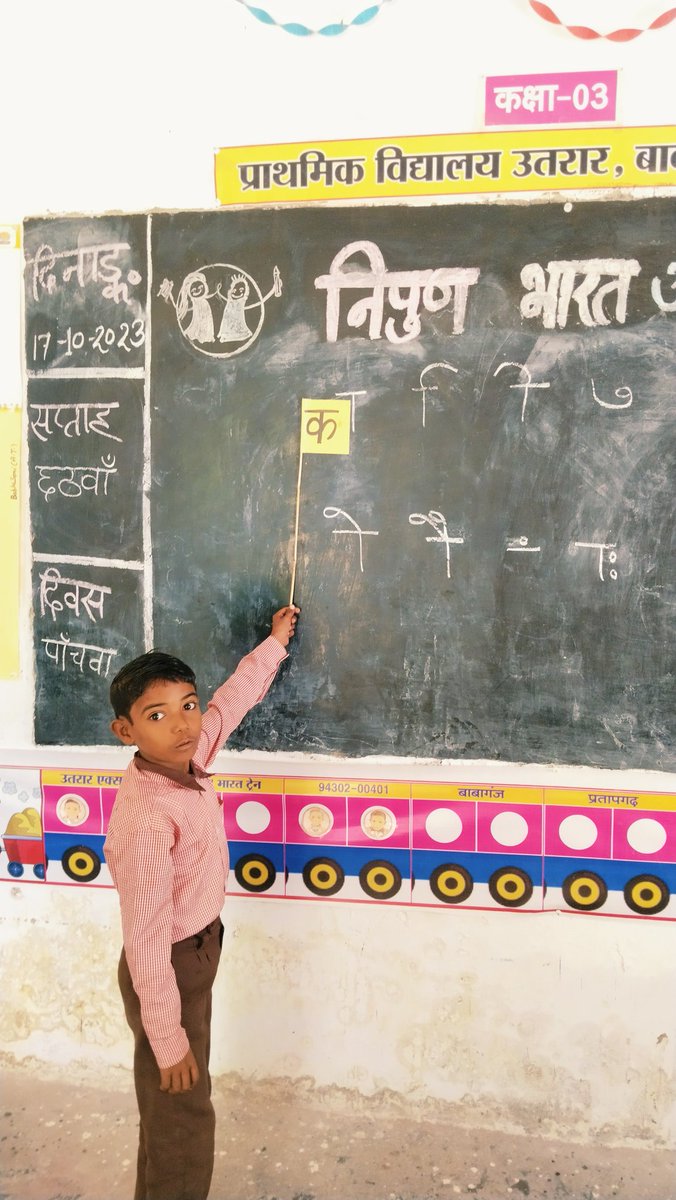 कक्षा-03
प्राथमिक विद्यालय उतरार,
दिनाङ्क
17-10-2023
सप्ताह
छठवाँ
दिवस
पाँचवा
निपुण भारत
क
ा ि ी ु
े ै ं ः
उतरार एक्स
भारत ट्रेन
94302-00401
बाबागंज
प्रतापगढ़